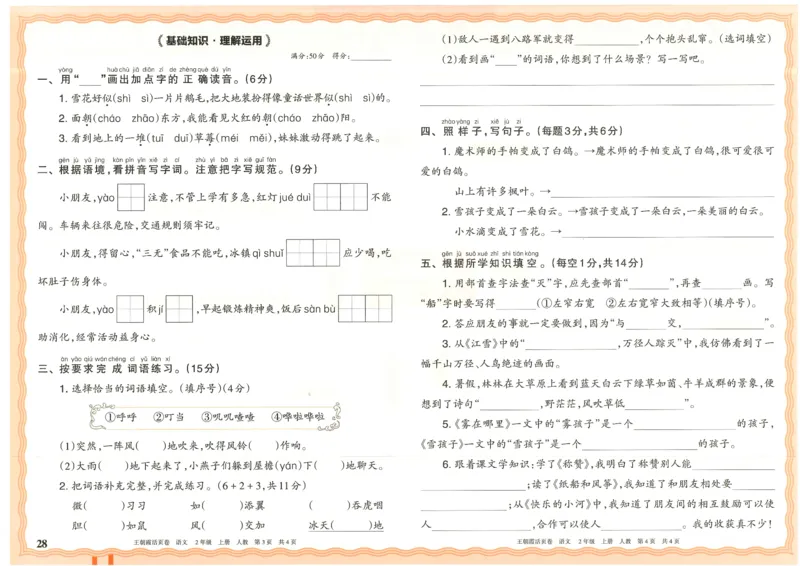 《基础知识·理解运用》
满分:50分 得分:________
yòng huà chū jiā diǎn zì de zhèng què dú yīn
一、用“____”画出加点字的正确读音。(6分)
1. 雪花好似(shì sì)一片片鹅毛,把大地装扮得像童话世界似(shì sì)的。
2. 面朝(cháo zhāo)东方,我能看见火红的朝(cháo zhāo)阳。
3. 看到地上的一堆(tuī duī)草莓(méi měi),妹妹激动得跳了起来。
gēn jù yǔ jìng kàn pīn yīn xiě zì cí zhù yì bǎ zì xiě guī fàn
二、根据语境,看拼音写字词。注意把字写规范。(9分)
小朋友,yào 注意,不管上学有多急,红灯 jué duì 不能
闯。车辆来往很危险,交通规则须牢记。
小朋友,得留心,“三无”食品不能吃,冰镇 qì shuǐ 应少喝,吃
坏肚子伤身体。
小朋友,yào 积 jí ,早起锻炼精神爽,饭后 sàn bù
助消化,经常活动益身心。
àn yāo qiú wán chéng cí yǔ liàn xí
三、按要求完成词语练习。(15分)
1. 选择恰当的词语填空。(填序号)(4分)
①呼呼 ②叮当 ③叽叽喳喳 ④哗啦哗啦
(1)突然,一阵风( )地吹来,吹得风铃( )作响。
(2)大雨( )地下起来了,小燕子们躲到屋檐(yán)下( )地聊天。
2. 把词语补充完整,并完成练习。(6+2+3,共11分)
微( )习习 如( )添翼 ( )吞虎咽
胆( )如鼠 风( )交加 冰天( )地
28
王朝霞活页卷 语文 2年级 上册 人教 第3页 共4页
(1)敌人一遇到八路军就变得__________,个个抱头乱窜。(选词填空)
(2)看到画“____”的词语,你想到了什么场景?写一写吧。
zhào yàng zi xiě jù zi
四、照样子,写句子。(每题3分,共6分)
1. 魔术师的手帕变成了白鸽。→魔术师的手帕变成了白鸽,很可爱很可
爱的白鸽。
山上有许多枫叶。→
2. 雪孩子变成了一朵白云。→雪孩子变成了一朵白云,一朵美丽的白云。
小水滴变成了雪花。→
gēn jù suǒ xué zhī shi tián kòng
五、根据所学知识填空。(每空1分,共14分)
1. 用部首查字法查“灭”字,应先查部首“________”,再查________画。写
“船”字时要写得________(①左窄右宽 ②左右宽窄大致相等)(填序号)。
2. 答应朋友的事就一定要做到,因为“与________交,________________”。
3. 从《江雪》中的“________________,万径人踪灭”中,我仿佛看到了一
幅千山万径、人鸟绝迹的画面。
4. 暑假,林林在大草原上看到蓝天白云下绿草如茵、牛羊成群的景象,便
想到了诗句“____________,野茫茫,风吹草低____________”。
5.《雾在哪里》一文中的“雾孩子”是一个____________________的孩子,
《雪孩子》一文中的“雪孩子”是一个____________________的孩子。
6. 跟着课文学知识:学了《称赞》,我明白了称赞别人能________________
____________________;读了《纸船和风筝》,我知道了和朋友相处要________
________________;从《快乐的小河》中,我知道了朋友间的相互鼓励可以使
人________________,合作可以使人________________。我的收获真不少!
王朝霞活页卷 语文 2年级 上册 人教 第4页 共4页